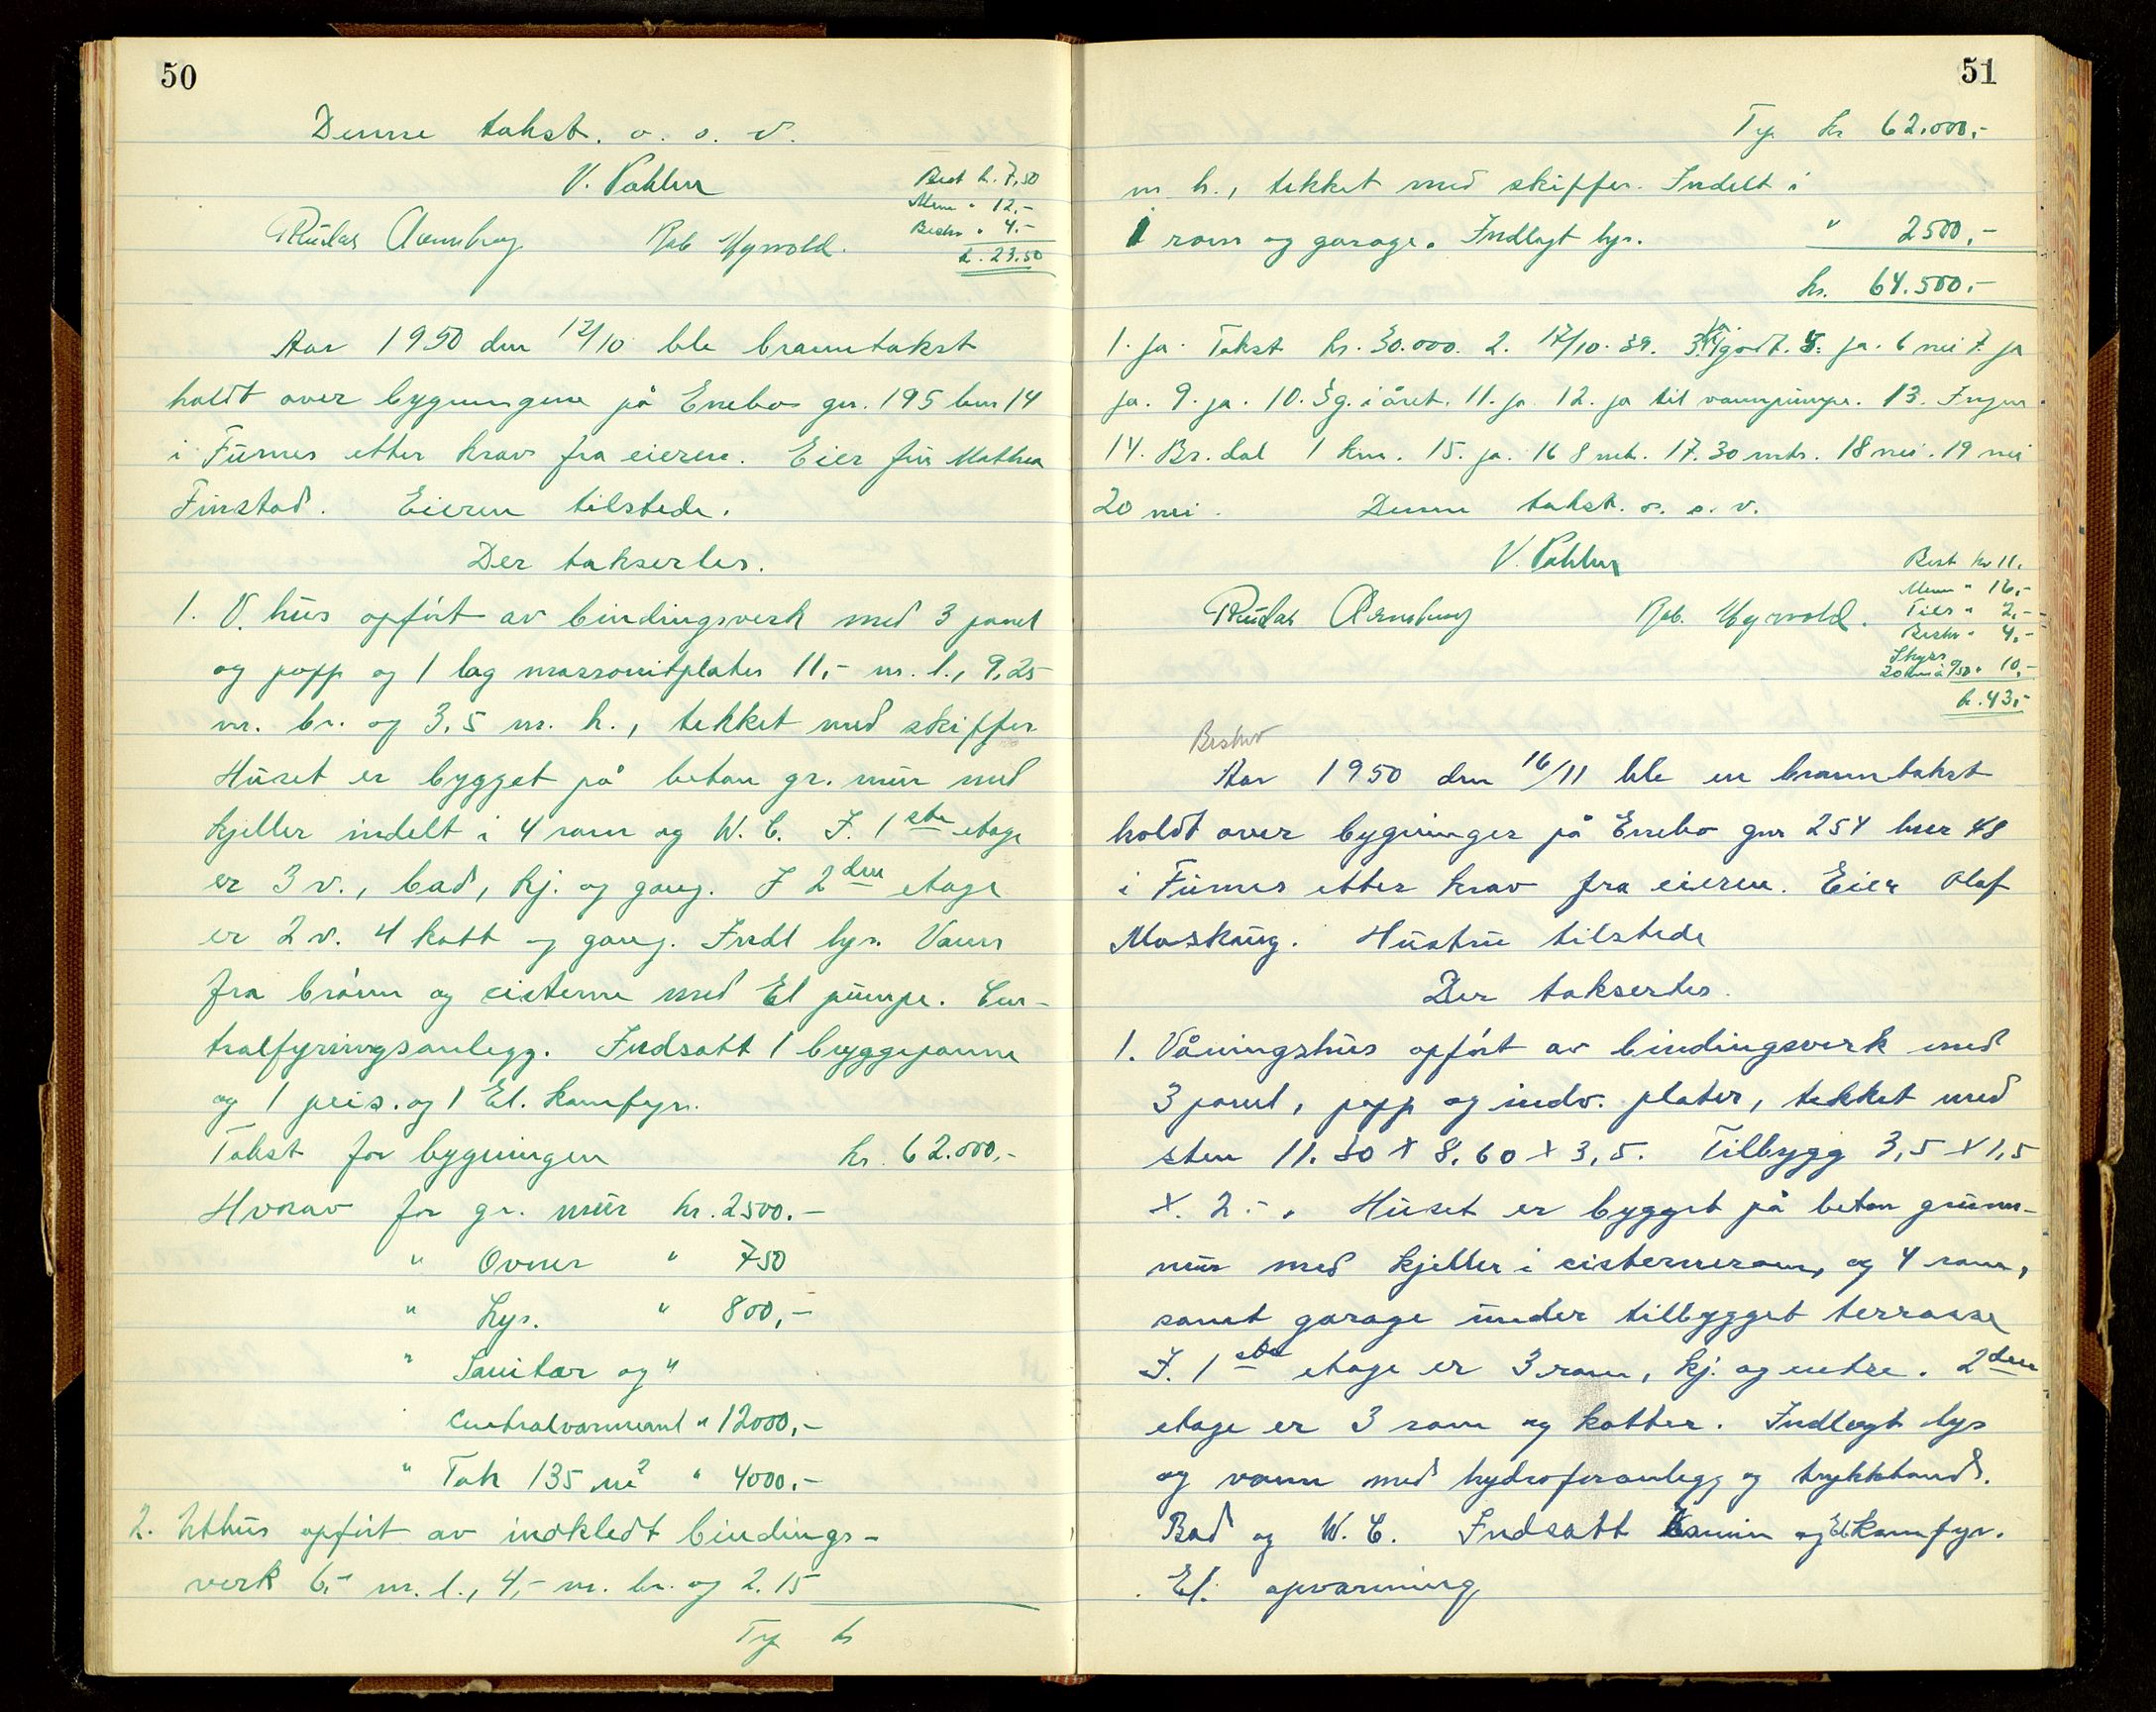 50
Denne takst. o. s. v.
V. Pahlm
Best k. 7,50
Menn " 12,-
Beskr " 4,-
k. 23.50
Rob Myrvold.
Aar 1950 den 12/10 ble branntakst
holdt over bygningene på Enebo gn. 195 bnr 14
i Furnes etter krav fra eieren. Eier fru Mathea
Finstad. Eieren tilstede.
Der takserles.
1. V. hus opført av bindingsverk med 3 panel
og papp og 1 lag massonitplater 11,- m. l., 9,25
m. br. og 3,5 m. h., tekket med skiffer
Huset er bygget på beton gr. mur med
kjeller indelt i 4 rom og W. C. I. 1ste etage
er 3 v., bad, kj. og gang. I 2den etage
er 2 v. 4 kott og gang. Indl lys. Vann
fra brønn og cisterne med El pumpe. Cen-
tralfyringsanlegg. Indsatt 1 bryggepanne
og 1 peis. og 1 El. komfyr.
Takst for bygningen kr. 62.000,-
Hvorav for gr. mur kr. 2500.-
" Ovner " 750
" Lys. " 800,-
" Sanitær og "
Centralvarmeanl " 12000,-
" Tak 135 m² " 4000.-
2. Uthus opført av indkledt bindings-
verk 6,- m. l., 4,- m. br. og 2.15
Trp kr
51
Trp kr 62.000,-
m h., tekket med skiffer. Indelt i
1 rom og garage. Indlagt lys. " 2500,-
kr. 64.500,-
1. ja. Takst kr. 30.000. 2. 17/10. 39. 3. godt. 5. ja. 6 nei 7. ja
ja. 9. ja. 10. 3 g. i året. 11. ja 12. ja til vannpumpe. 13. Ingen
14. Br. dal 1 km. 15. ja. 16 8 mt. 17. 30 mtr. 18 nei. 19 nei
20 nei. Denne takst. o. s. v.
V. Pahlm
Best kr 11,
Menn " 16,-
" 2,-
Beskr " 4,-
Skyss
20 km à 0/50 " 10,-
k. 43,-
Rob. Myrvold.
Beskr
Aar 1950 den 16/11 ble en branntakst
holdt over bygninger på Enebo gnr 254 bnr 48
i Furnes etter krav fra eieren. Eier Olaf
Moskaug. Hustru tilstede
Der taksertes.
1. Våningshus opført av bindingsverk med
3 panel, papp og indv. plater, tekket med
sten 11.30 x 8,60 x 3,5. Tilbygg 3,5 x 1,5
x. 2.-. Huset er bygget på beton grunn-
mur med kjeller i cisternerom, og 4 rom,
samt garage under tilbygget terrasse
I. 1ste etage er 3 rom, kj. og entre. 2den
etage er 3 rom og kotter. Indlagt lys
og vann med hydroforanlegg og trykktank.
Bad og W. C. Indsatt kamin og El komfyr.
El. opvarming